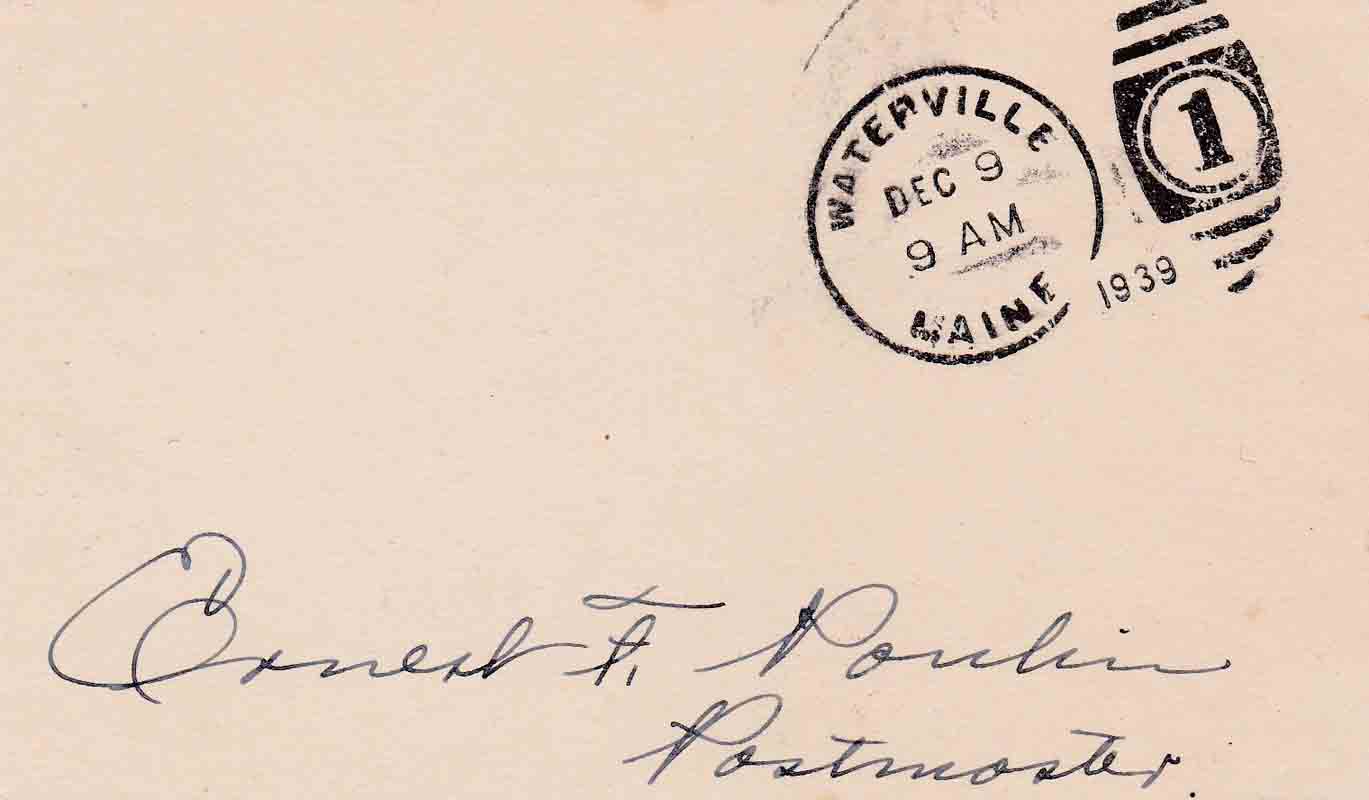 WATERVILLE
DEC 9
9 AM
MAINE
1939
1
Ernest F. Poulin
Postmaster.